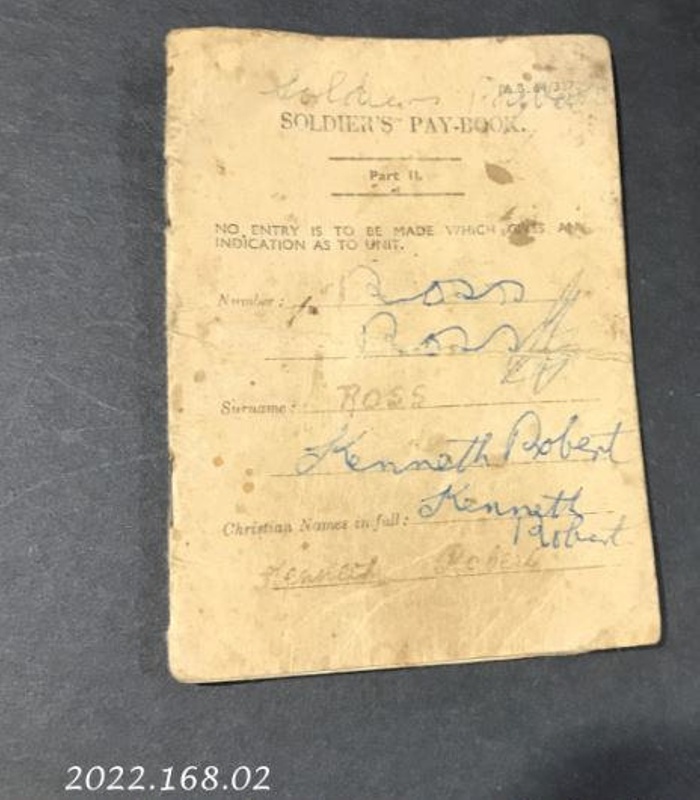 Soldiers
SOLDIER'S PAY-BOOK.
Part II.
NO ENTRY IS TO BE MADE WHICH GIVES ANY
INDICATION AS TO UNIT.
Number: Ross
Ross
Surname: ROSS
Kenneth Robert
Christian Names in full: Kenneth
Robert
Kenneth Robert
2022.168.02